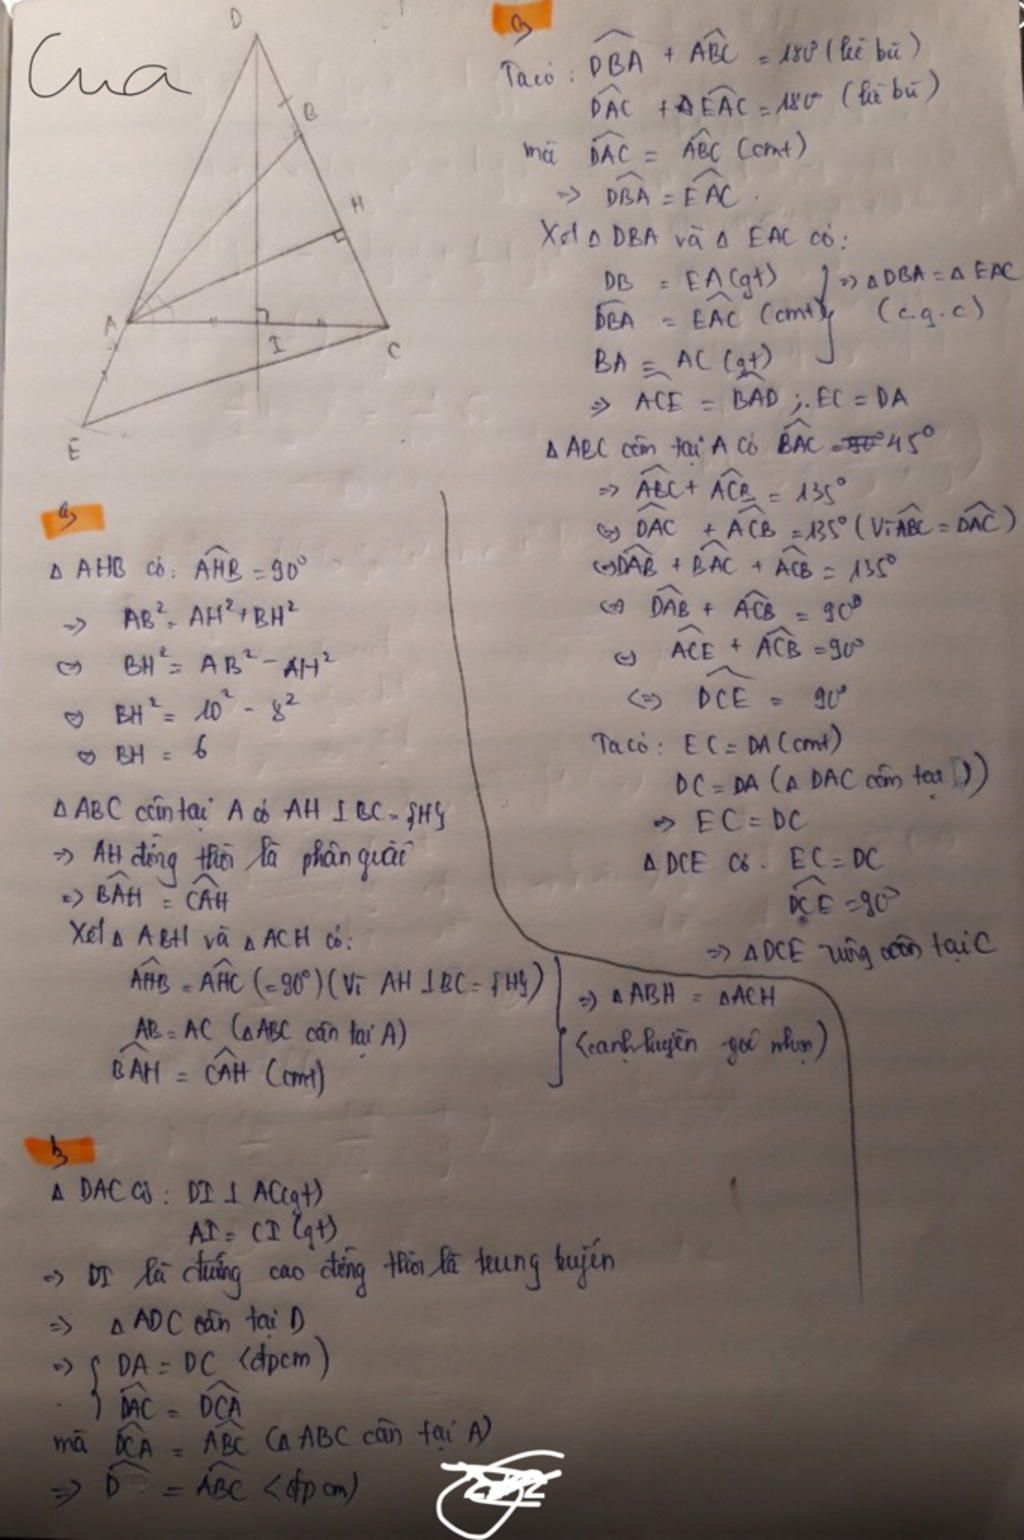 Cua
D
B
H
A
I
C
E
a,
Δ AHB có: AHB = 90°
=> AB² = AH² + BH²
<=> BH² = AB² - AH²
<=> BH² = 10² - 8²
<=> BH = 6
Δ ABC cân tại A có AH ⊥ BC = {H}
=> AH đồng thời là phân giác
=> BAH = CAH
Xét Δ ABH và Δ ACH có:
AHB = AHC (=90°) (Vì AH ⊥ BC = {H})
AB = AC (Δ ABC cân tại A)
BAH = CAH (cmt)
=> Δ ABH = Δ ACH
(cạnh huyền góc nhọn)
b,
Δ DAC có: DI ⊥ AC (gt)
AI = CI (gt)
=> DI là đường cao đồng thời là trung tuyến
=> Δ ADC cân tại D
=> { DA = DC <đpcm)
DAC = DCA
mà DCA = ABC (Δ ABC cân tại A)
=> D = ABC <đpcm)
Ta có: DBA + ABC = 180° (kề bù)
DAC + EAC = 180° (kề bù)
mà DAC = ABC (cmt)
=> DBA = EAC.
Xét Δ DBA và Δ EAC có:
DB = EA (gt)
DBA = EAC (cmt)
BA = AC (gt)
=> Δ DBA = Δ EAC
(c.g.c)
=> ACE = BAD ; EC = DA
Δ ABC cân tại A có BAC = 45°
=> ABC + ACB = 135°
<=> DAC + ACB = 135° (Vì ABC = DAC)
<=> DAB + BAC + ACB = 135°
<=> DAB + ACB = 90°
<=> ACE + ACB = 90°
<=> DCE = 90°
Ta có: EC = DA (cmt)
DC = DA (Δ DAC cân tại D)
=> EC = DC
Δ DCE có: EC = DC
DCE = 90°
=> Δ DCE vuông cân tại C